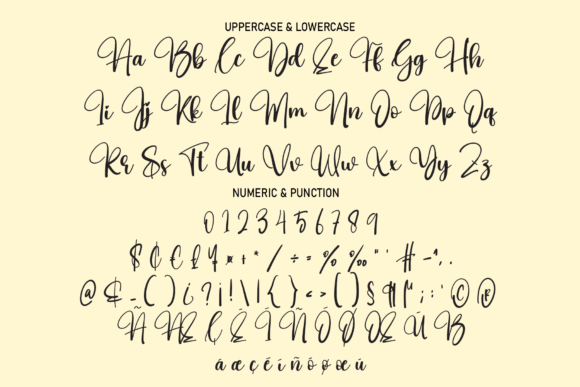 UPPERCASE & LOWERCASE
Aa Bb Cc Dd Ee Ff Gg Hh
Ii Jj Kk Ll Mm Nn Oo Pp Qq
Rr Ss Tt Uu Vv Ww Xx Yy Zz
NUMERIC & PUNCTION
0 1 2 3 4 5 6 7 8 9
$ ¢ € £ ¥ ¤ + * / ÷ = % ‰ " ' # - ^ , .
@ & _ ( ) ¿ ? ¡ ! \ | { } < > [ ] § ¶ ; : ' © ®
Ñ Æ Ç É Í Ñ Ó Ø Œ Ú ß
á æ ç é í ñ ó ø œ ú